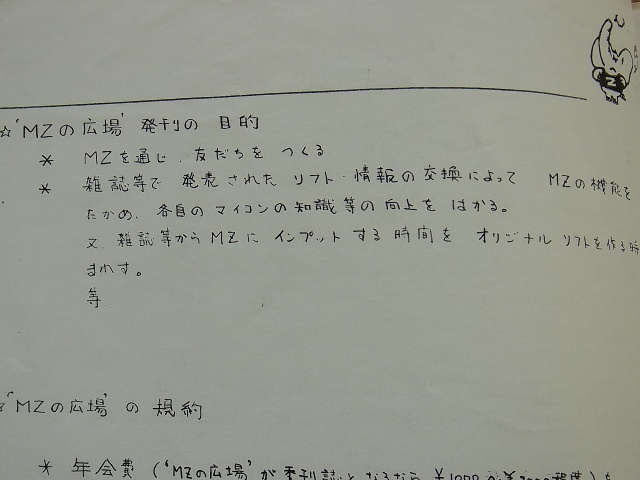 ☆'MZの広場'発刊の目的
* MZを通じ、友だちを つくる
* 雑誌等で 発表された ソフト・情報の交換によって MZの機能を
たかめ、各自のマイコンの知識等の向上を はかる。
又、雑誌等からMZに インプット する時間を オリジナル ソフトを作る時
まわす。
等
☆'MZの広場'の規約
* 年会費('MZの広場'が季刊誌となるなら ¥1000